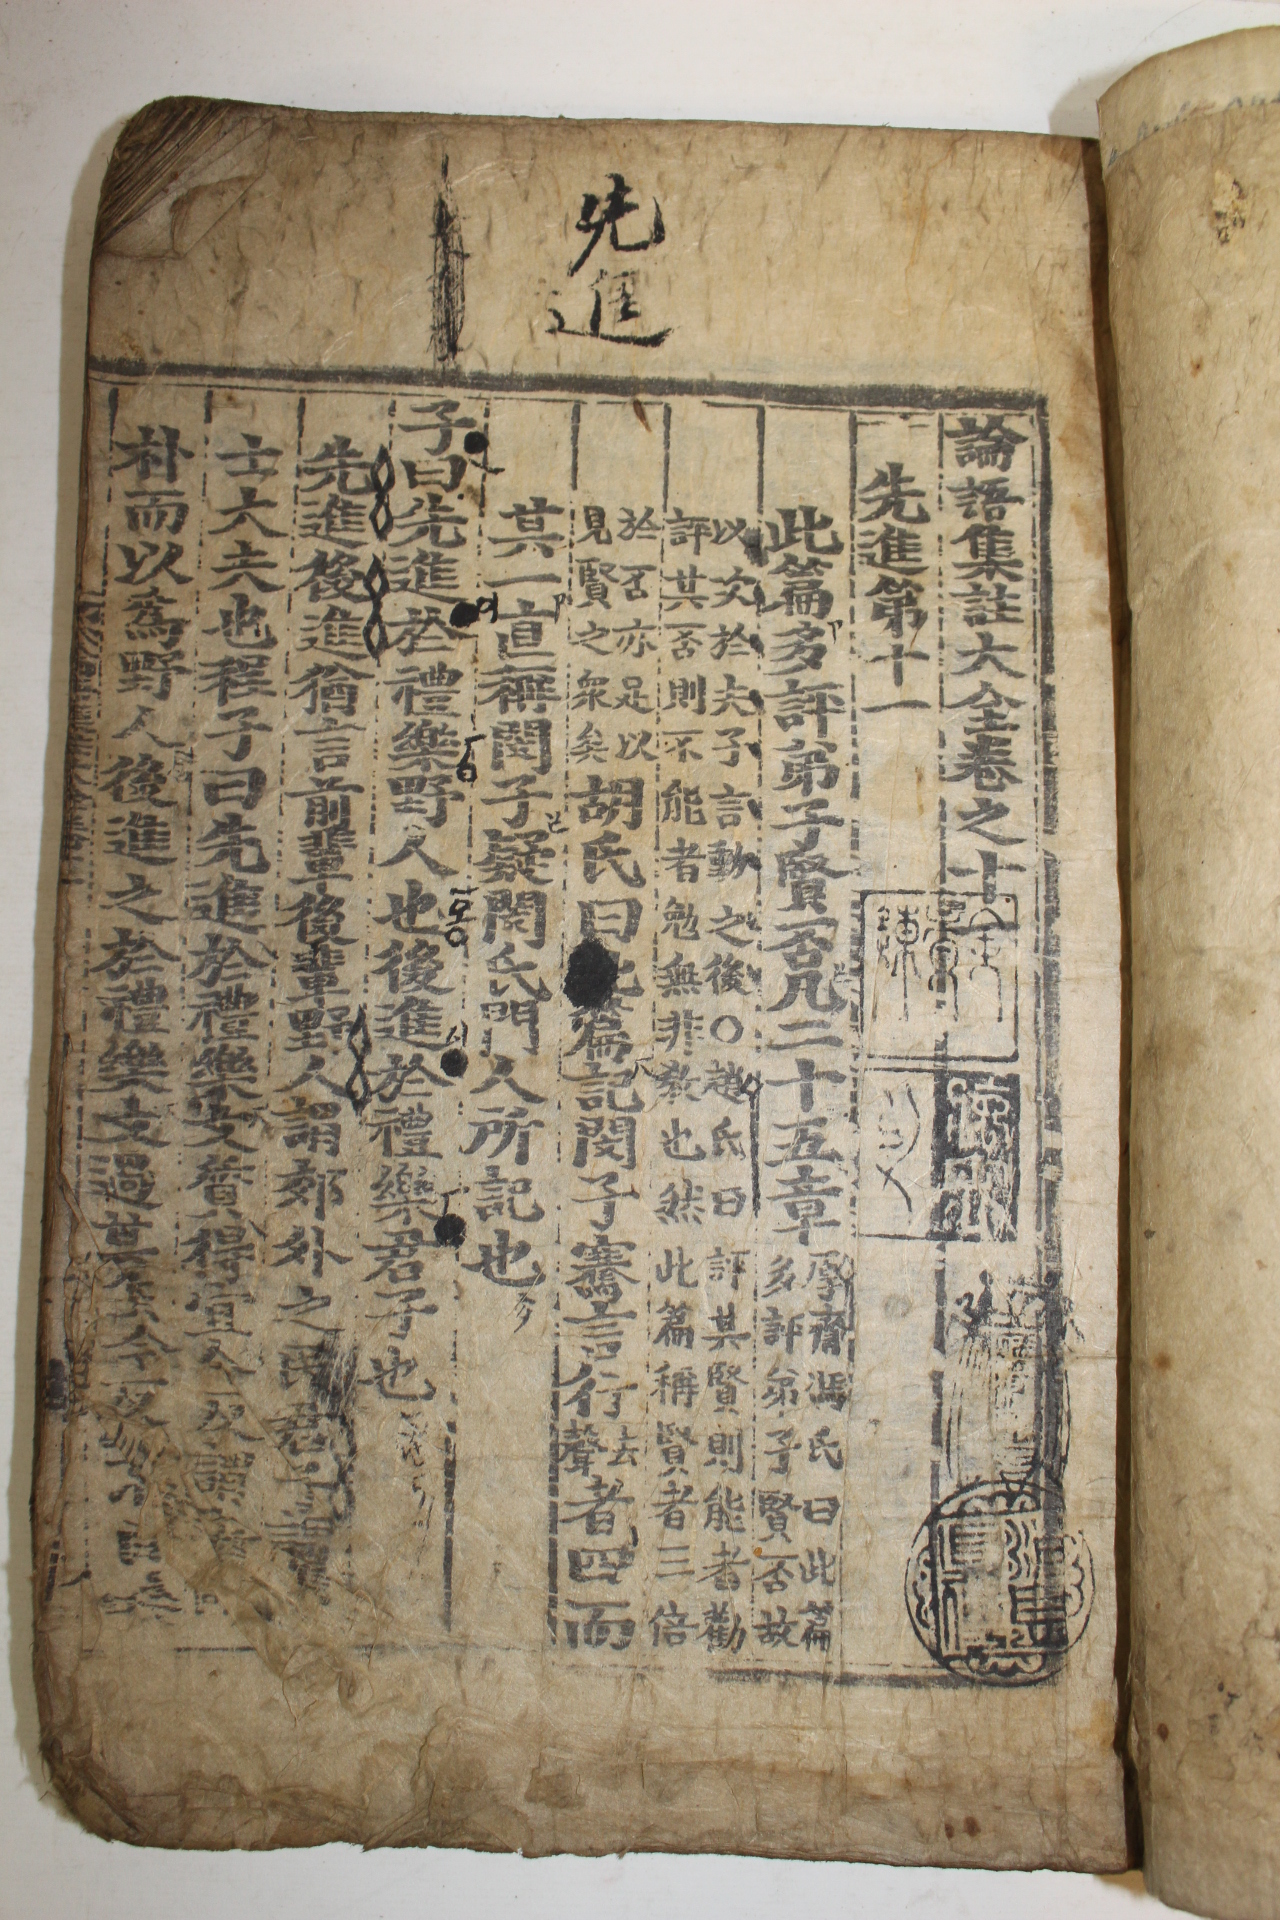 先進
論語集註大全卷之十一
先進第十一
此篇多評弟子賢否凡二十五章厚齋馮氏曰此篇多評弟子賢否故
以次於夫子言動之後○趙氏曰評其賢則能者勸
評其否則不能者勉無非敎也然此篇稱賢者三倍
於否亦足以見賢之衆矣胡氏曰此篇記閔子騫言行去聲者四而
其一直稱閔子疑閔氏門人所記也
子曰先進於禮樂野人也後進於禮樂君子也
先進後進猶言前輩後輩野人謂郊外之民君子謂賢
士大夫也程子曰先進於禮樂文質得宜今反謂之
朴而以爲野人後進之於禮樂文過其質今反